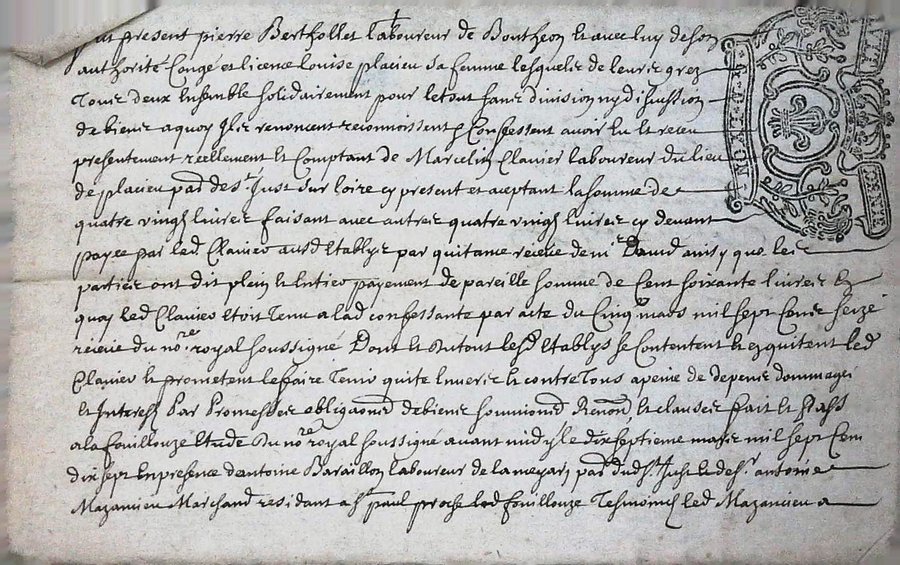 fut present pierre Berthollet laboureur de Boutheon et avec luy de son
authorité Congé et licence Louise placieu sa femme lesquels de leurs grez
Tous deux Ensemble solidairement pour le tout sans division ny discussion
de biens a quoy Ils renoncent reconnoissent et Confessent avoir Eu et receu
presentement reellement et Comptant de Marcelin Clavier laboureur du lieu
de placieu par.d de St Just sur loire cy present et aceptant la somme de
quatre vingt livres faisant avec autres quatre vingt livres cy devant
payee par led Clavier ausd Etablys par quitance receue de mr David ainsy que les
parties ont dit plein et Entier payement de pareille somme de Cent soixante livres En
quoy led Clavier Etoit Tenu a lad confessante par acte du Cinq mars mil sept Cents seize
receue du nore royal soussigné Dont et du tout lesd Etablys se Contentent et en quitent led
Clavier et prometent le faire Tenir quite Envers et contre Tous a peine de depens dommages
et Interests Par Promesses obligaons de biens soumions Renons et clauses fait et passé
a la fouillouze Etude du nore royal soussigné avant midy le dix septieme mars mil sept Cent
dix sept En presence d'antoine Baraillon laboureur de par.d dud St Just et de sr antoine
Mazanieu Marchand residant a St paul proche led fouillouze Tesmoins led Mazanieu a